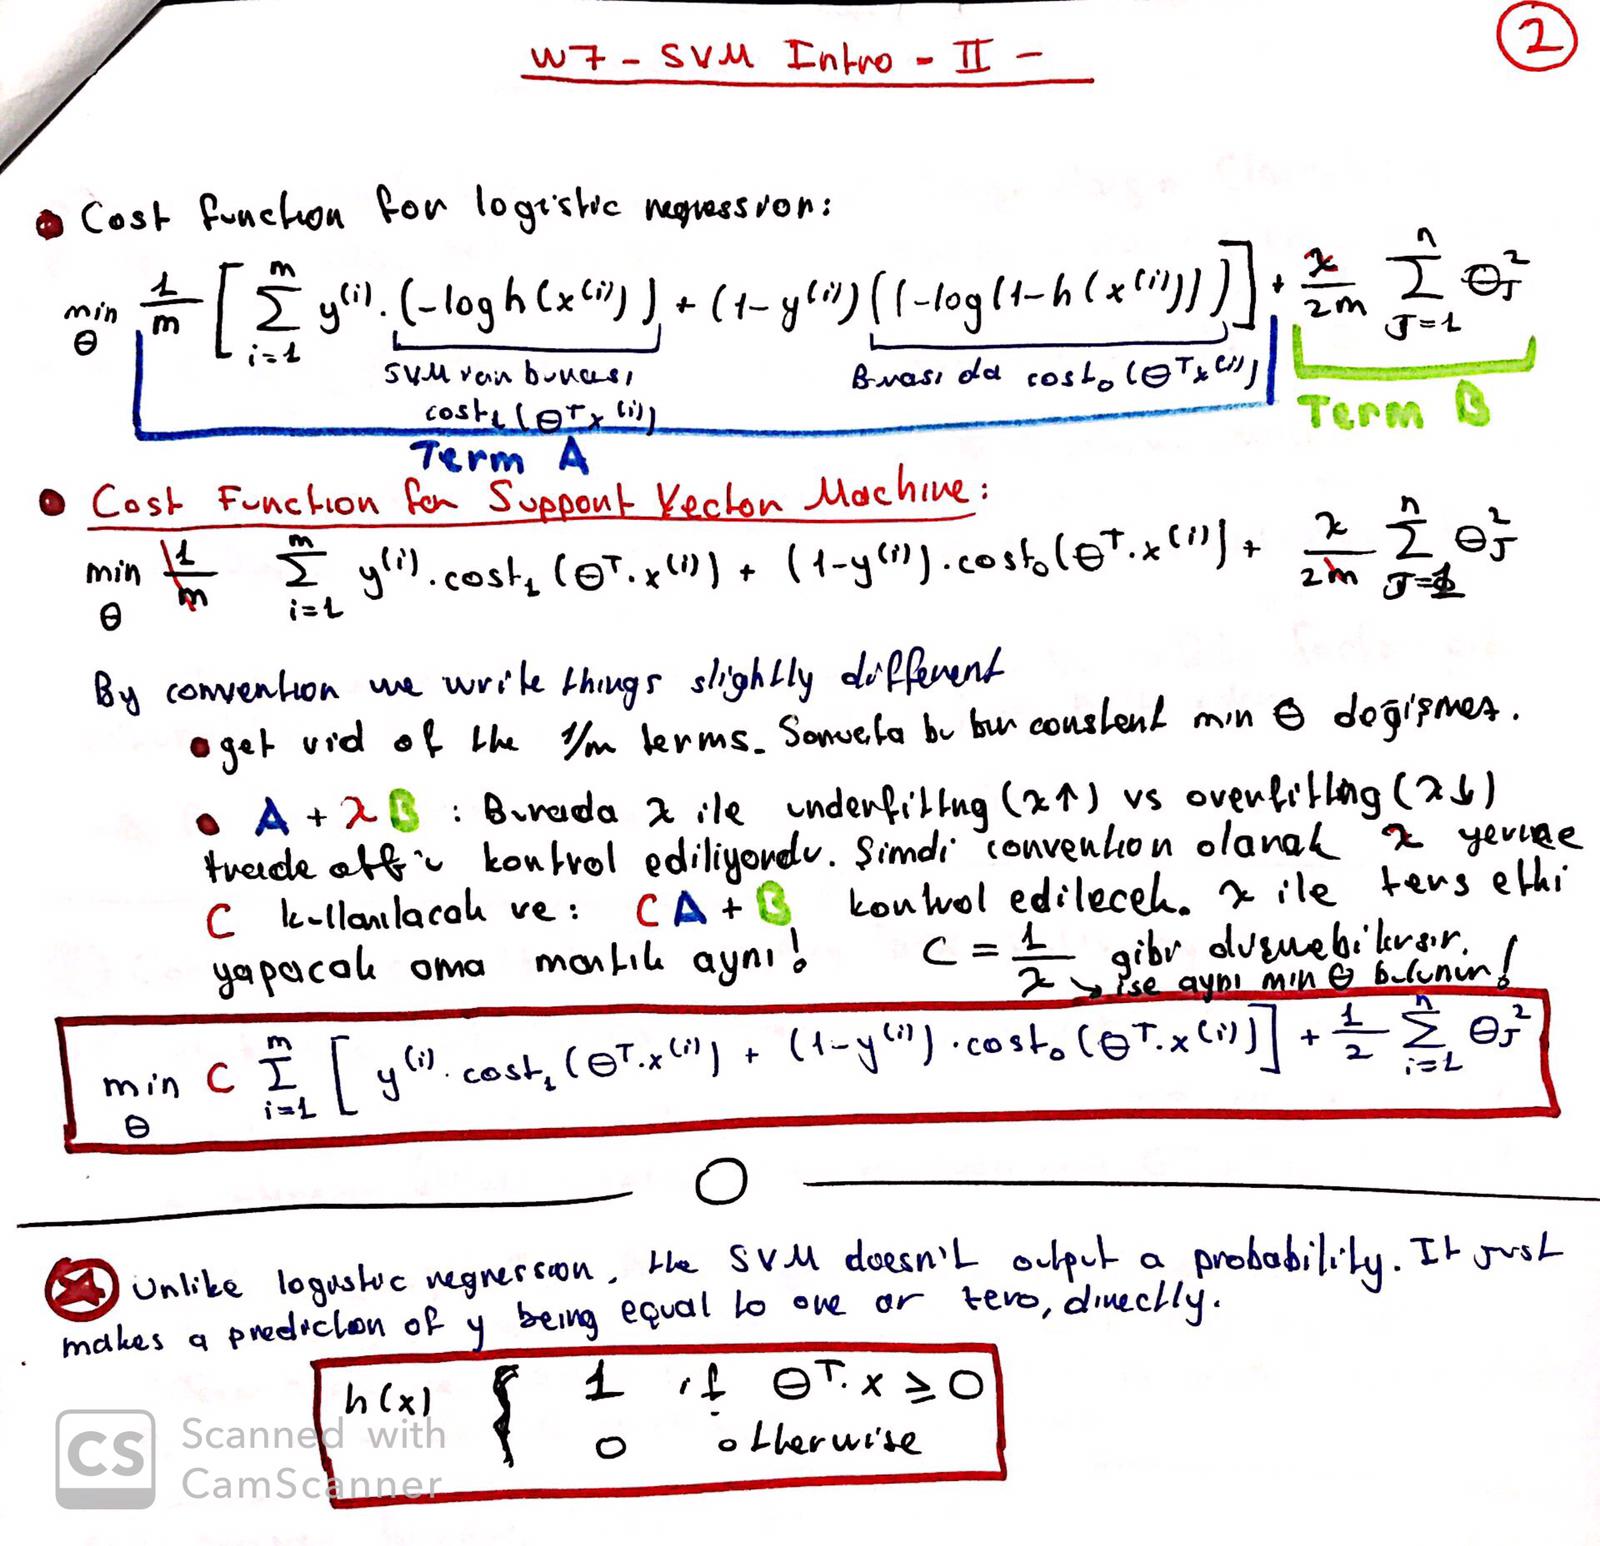 W7 - SVM Intro - II -
2
Cost function for logistic regression:
min θ 1/m [ Σ i=1 m y(i) . (-log h(x(i))) + (1-y(i)) ((-log(1-h(x(i)))) ] + λ/2m Σ J=1 n θJ²
SVM için burası cost₁(θᵀx(i))
Burası da cost₀(θᵀx(i))
Term A
Term B
Cost Function for Support Vector Machine:
min θ 1/m Σ i=1 m y(i) . cost₁(θᵀ.x(i)) + (1-y(i)) . cost₀(θᵀ.x(i)) + λ/2m Σ J=1 n θJ²
By convention we write things slightly different
get rid of the 1/m terms. Sonuçta bu bir constant min θ değişmez.
A + λB : Burada λ ile underfitting (λ↑) vs overfitting (λ↓)
trade off'u kontrol ediliyordu. Şimdi convention olarak λ yerine
C kullanılacak ve: CA + B kontrol edilecek. λ ile ters etki
yapacak ama mantık aynı! C = 1/λ gibi düşünebilirsin.
ise aynı min θ bulunur!
min θ C Σ i=1 m [ y(i) . cost₁(θᵀ.x(i)) + (1-y(i)) . cost₀(θᵀ.x(i)) ] + 1/2 Σ i=1 n θJ²
Unlike logistic regression, the SVM doesn't output a probability. It just
makes a prediction of y being equal to one or zero, directly.
h(x) { 1 if θᵀ.x ≥ 0
0 otherwise
CS Scanned with
CamScanner